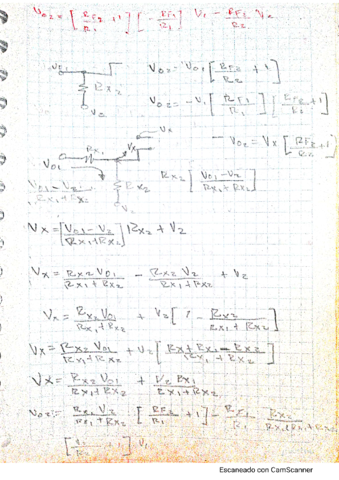 V02 = [RF2/R1 + 1] [- RF1/R1] V1 - RF2/R2 V2
V02 = V01 [RF2/R2 + 1]
Rx2
V02 = -V1 [RF1/R1] [RF2/R2 + 1]
Vx
Rx1
V01
V02 = Vx [RF2/R2 + 1]
V01 - V2 / Rx1 + Rx2
Rx2
Rx2 [V01 - V2 / Rx1 + Rx2]
Vx = [V01 - V2 / Rx1 + Rx2] Rx2 + V2
Vx = Rx2 V01 / Rx1 + Rx2 - Rx2 V2 / Rx1 + Rx2 + V2
Vx = Rx2 V01 / Rx1 + Rx2 + V2 [1 - Rx2 / Rx1 + Rx2]
Vx = Rx2 V01 / Rx1 + Rx2 + V2 [Rx2 + Rx1 - Rx2 / Rx1 + Rx2]
Vx = Rx2 V01 / Rx1 + Rx2 + V2 Rx1 / Rx1 + Rx2
V02 = Rx1 V2 / Rx1 + Rx2 [RF2/R2 + 1] - RF1/R1 Rx2
+ 1] V1
Escaneado con CamScanner